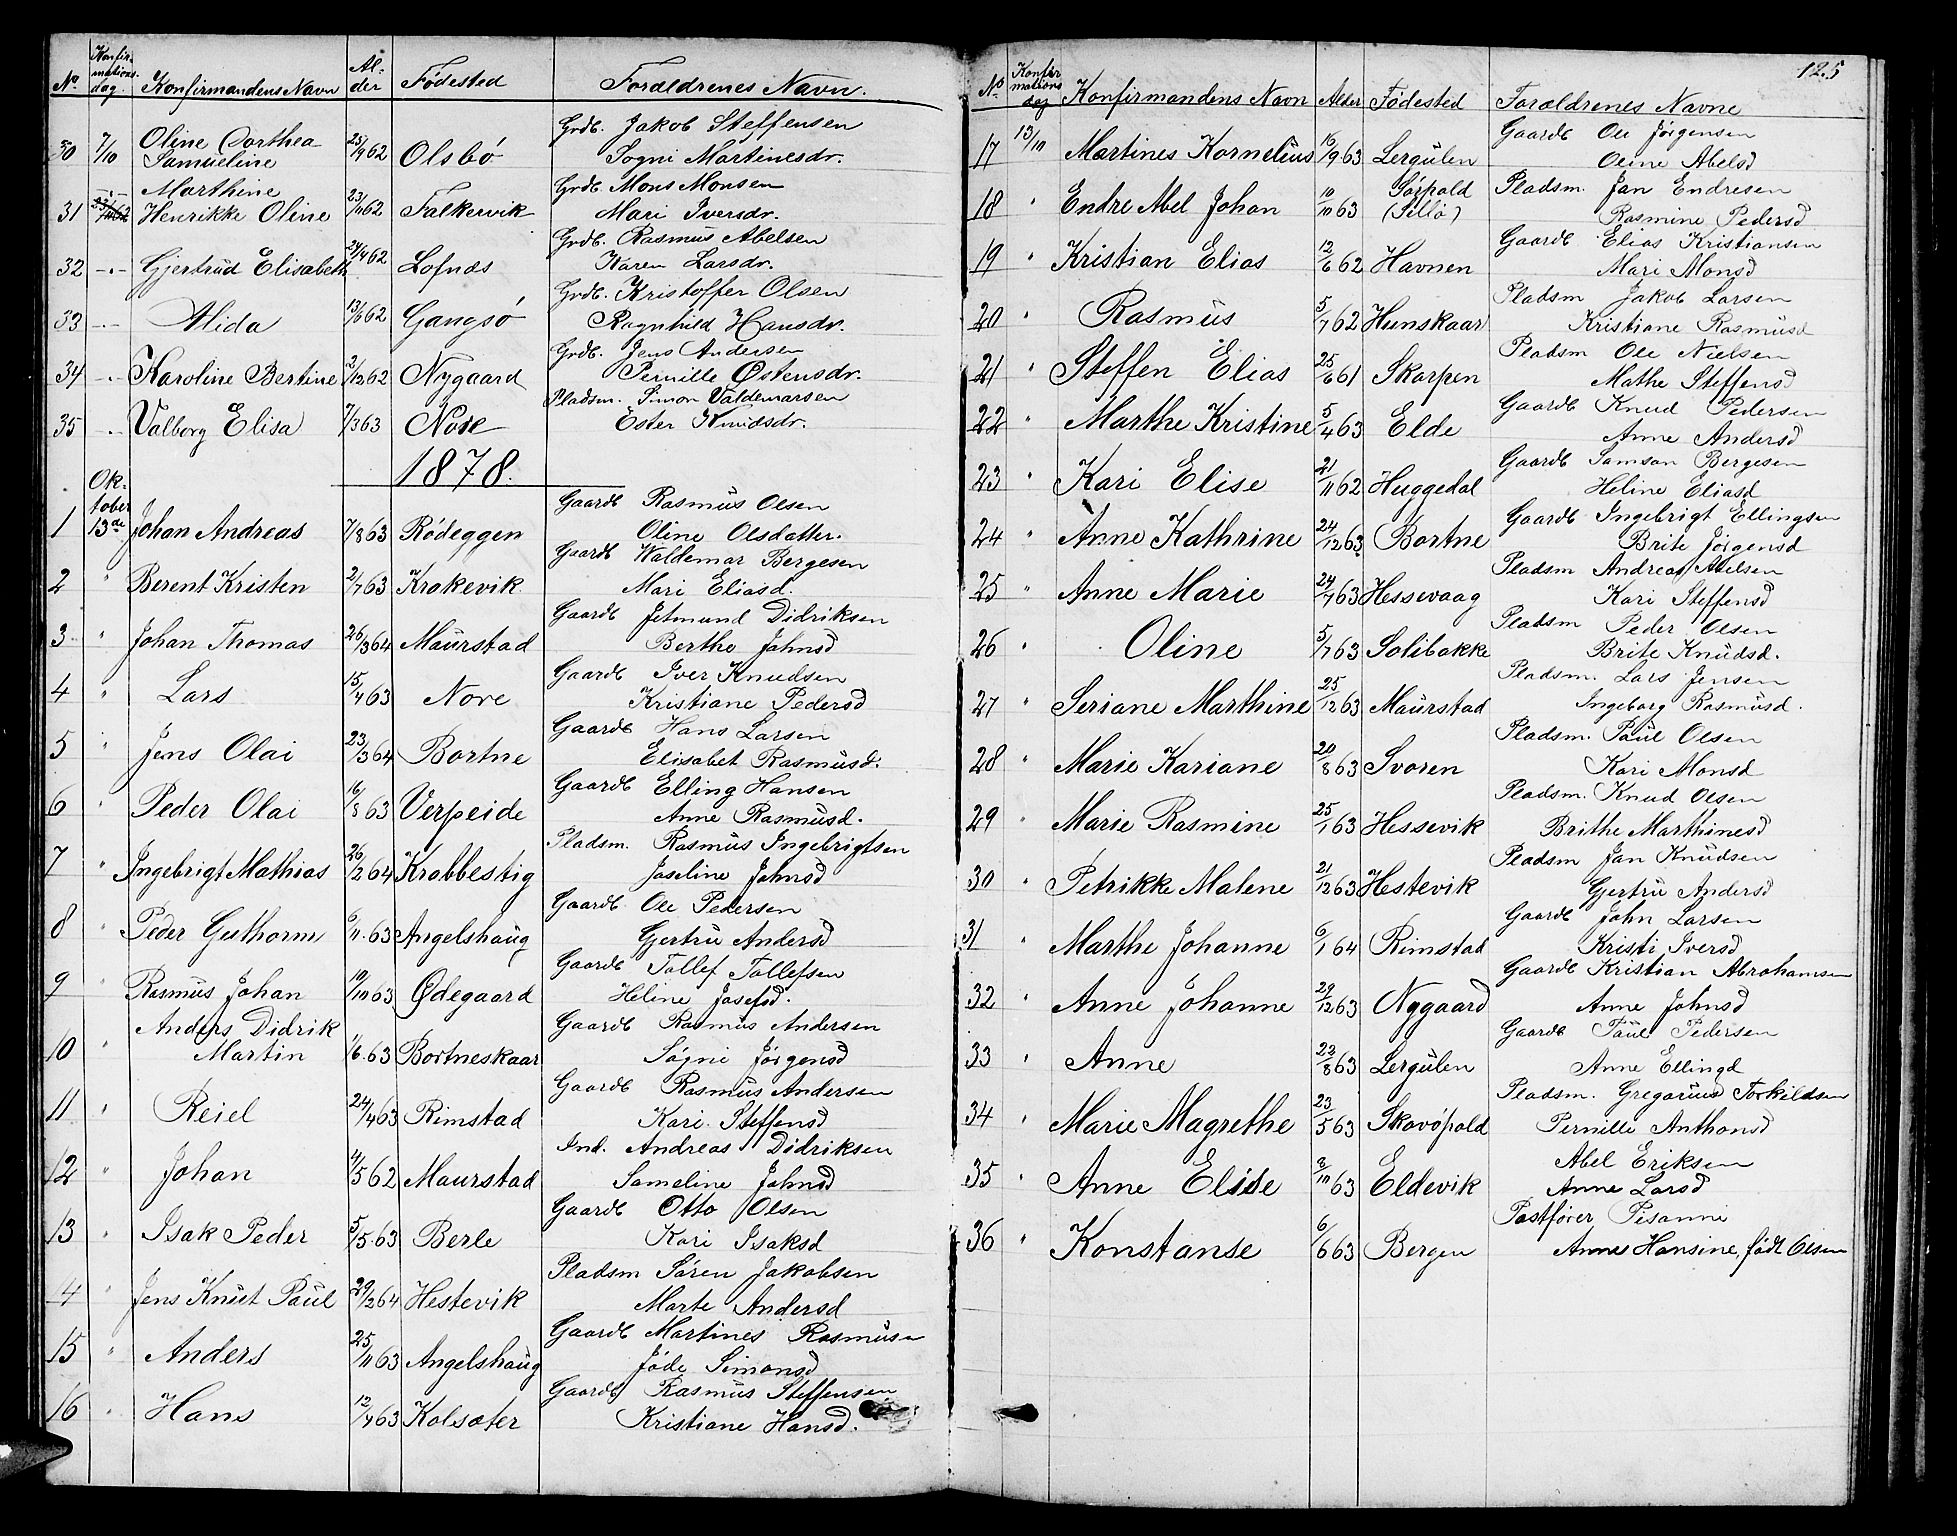 No. Konfirmationsdag. Konfirmandens Navn Alder Fødested Forældrenes Navn.
30 7/10 Oline Dorthea Samueline 25/9 62 Olsbö Grdb. Jakob Steffensen
Sogni Martinesdr.
31 Marthine Henrikke Oline 23/11 62 Falkevik Grdb. Mons Monsen
Mari Iversdr.
32 -"- Gjertrud Elisabeth 24/9 62 Lofnæs Grdb. Rasmus Abelsen
Karen Larsdr.
33 -"- Alida 13/6 62 Gangsö Grdb. Kristoffer Olsen
Ragnhild Hansdr.
34 -"- Karoline Bertine 2/12 62 Nygaard Grdb. Jens Andersen
Pernille Østensdr.
35 -"- Valborg Elisa 7/3 63 Nore Pladsm. Simon Valdemarsen
Ester Knudsdr.
1878.
1 Oktober 13de Johan Andreas 7/8 63 Rödeggen Gaardb Rasmus Olsen
Oline Olsdatter.
2 " Berent Kristen 2/7 63 Krokevik Gaardb Waldemar Bergesen
Mari Eliasd.
3 " Johan Thomas 26/3 64 Maurstad Gaardb Jetmund Didriksen
Berthe Johnsd
4 " Lars 15/4 63 Nore Gaardb Iver Knudsen
Kristiane Pedersd
5 " Jens Olai 23/3 64 Bortne Gaardb Hans Larsen
Elisabet Rasmusd.
6 " Peder Olai 16/8 63 Verpeide Gaardb Elling Hansen
Anne Rasmusd.
7 " Ingebrigt Mathias 26/2 64 Krabbestig Pladsm. Rasmus Ingebrigtsen
Joseline Johnsd
8 " Peder Guthorm 6/11 63 Angelshaug Gaardb Ole Pedersen
Gjertru Andersd
9 " Rasmus Johan 10/10 63 Ødegaard Gaardb Tollef Tollefsen
Heline Josefsd.
10 " Anders Didrik Martin 1/6 63 Bortneskaar Gaardb Rasmus Andersen
Sögni Jörgensd
11 " Reiel 24/4 63 Rimstad Gaardb Rasmus Andersen
Kari Steffensd
12 " Johan 4/5 62 Maurstad Ind. Andreas Didriksen
Sameline Johnsd
13 " Isak Peder 5/5 63 Berle Gaardb Otto Olsen
Kari Isaksd
4 " Jens Knut Paul 29/2 64 Hestevik Pladsm Sören Jakobsen
Marte Andersd
15 " Anders 25/11 63 Angelshaug Gaardb Martines Rasmusen
Jöde Simonsd
16 " Hans 12/7 63 Kolsæter Gaardb Rasmus Steffensen
Kristiane Hansd.
125
No Konfirmationsdag Konfirmandens Navn Alder Fødested Forældrenes Navne
17 13/10 Martines Kornelius 16/9 63 Lergulen Gaardb Ole Jörgensen
Oline Abelsd
18 " Endre Abel Johan 10/10 63 Sörpold (Sillö) Pladsm. Jan Endresen
Rasmine Pedersd
19 " Kristian Elias 12/6 62 Havnen Gaardb Elias Kristiansen
Mari Monsd
20 " Rasmus 5/7 62 Hunskaar Pladsm Jakob Larsen
Kristiane Rasmusd
21 " Steffen Elias 25/6 61 Skarpen Pladsm Ole Nielsen
Mathe Steffensd
22 " Marthe Kristine 5/4 63 Elde Gaardb Knud Pedersen
Anne Andersd
23 " Kari Elise 21/11 62 Huggedal Gaardb Samson Bergesen
Heline Eliasd
24 " Anne Kathrine 24/12 63 Bortne Gaardb Ingebrigt Ellingsen
Brite Jörgensd
25 " Anne Marie 24/7 63 Hessevaag Pladsm Andreas Abelsen
Kari Steffensd
26 " Oline 5/7 63 Solibakke Pladsm Peder Olsen
Brite Knudsd.
27 " Seriane Marthine 25/12 63 Maurstad Pladsm. Lars Jensen
Ingeborg Rasmusd.
28 " Marie Kariane 20/8 63 Svoren Pladsm. Paul Olsen
Kari Monsd
29 " Marie Rasmine 25/1 63 Hessevik Pladsm. Knud Olsen
Brithe Marthinesd
30 " Petrikke Malene 21/12 63 Hestevik Pladsm Jan Knudsen
Gjertru Andersd
31 " Marthe Johanne 6/1 64 Rimstad Gaardb John Larsen
Kristi Iversd
32 " Anne Johanne 29/12 63 Nygaard Gaardb Kristian Abrahamsen
Anne Johnsd
33 " Anne 22/8 63 Lergulen Gaardb Paul Pedersen
Anne Ellingd
34 " Marie Magrethe 23/5 63 Skavöpold Pladsm. Gregarius Torkildsen
Pernille Anthonsd
35 " Anne Elide 2/10 63 Eldevik Abel Eriksen
Anne Larsd
36 " Konstanse 6/6 63 Bergen Postförer Pisanni
Anne Hansine, födt Olsen